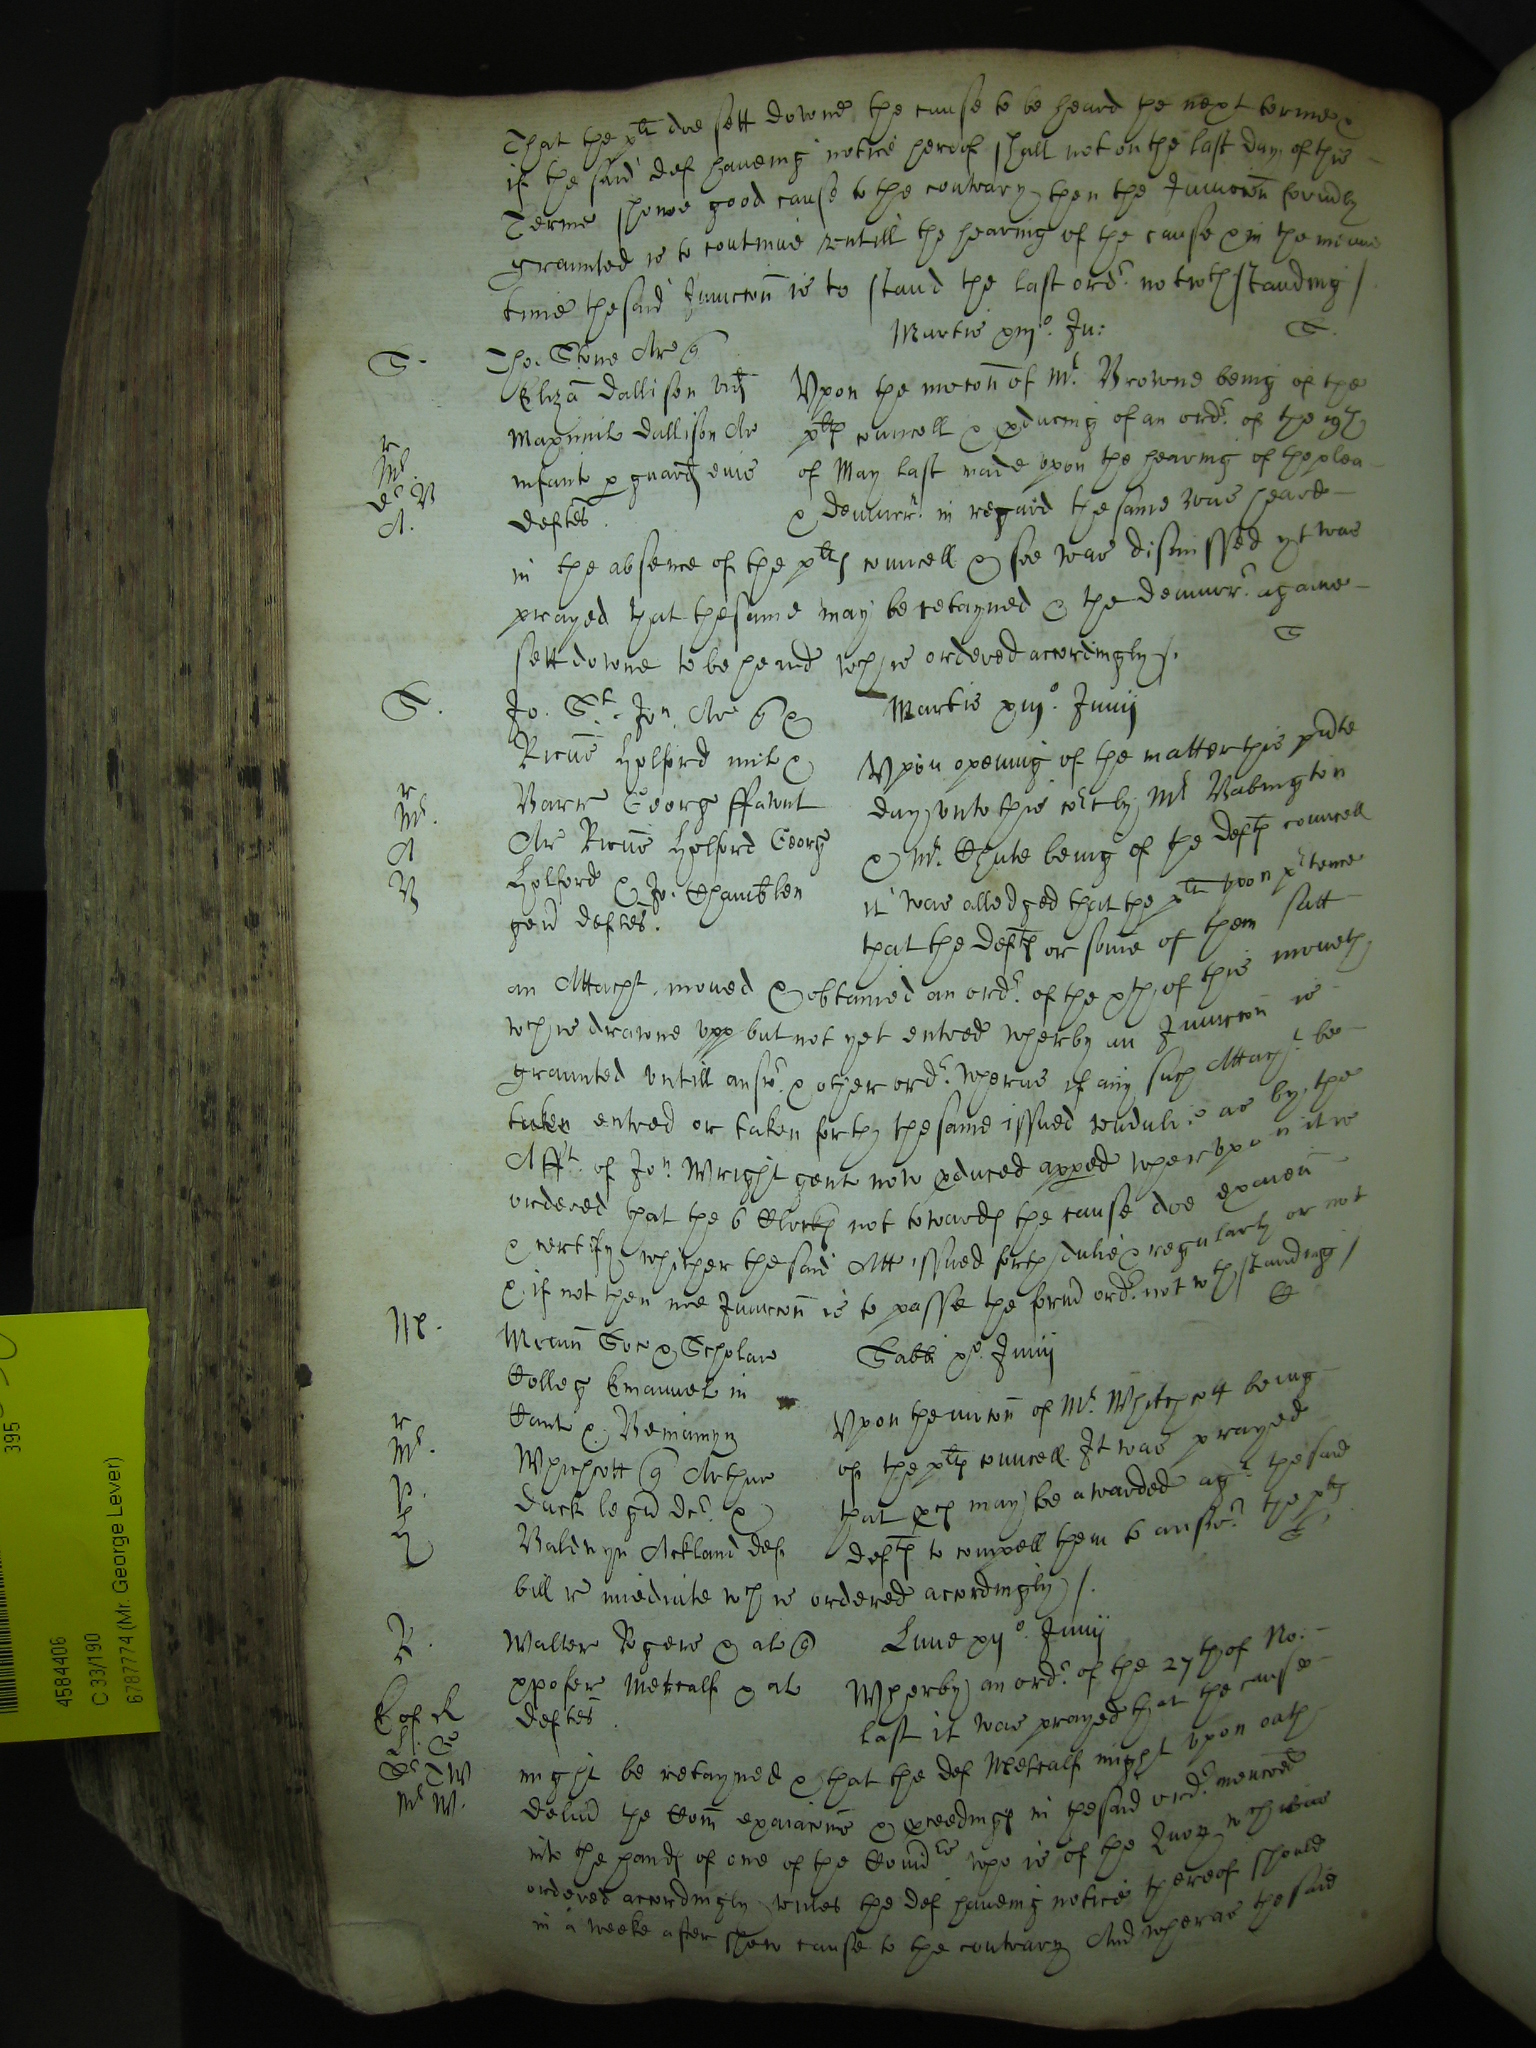 That the plt doe sett downe the cause to be heard the next terme &
if the said def haveing notice hereof shall not on the last day of this
Terme shewe good cause to the contrary then the Juncton formly
graunted is to continue untill the hearing of the cause & in the meane
time the said Juncton is to stand the last ordr. notwthstanding /
Martis xiijo. Ju:
S.
S.
Tho. Stone Ar q
Eliza Dallison vid
Maximil Dallison Ar
infant p guard eius
deftes.
r
Mr.
A.
Upon the mocon of Mr. Browne being of the
pltes councell & pducing of an ordr. of the 19th
of May last made upon the hearing of the plea
& demurr. in regard the same was heard
in the absence of the pltes councell & soe was dismissed yt was
prayed that the same may be retayned & the demurr. againe
sett downe to be heard wch is ordered accordingly /.
S
S.
Jo. St. Jon. Ar q &
Ricus Holford mil &
Barr George ffawnt
Ar Ricus Holford Georg
Holford & Jo. Chamblen
gen deftes.
r
Mr.
A
B
Martis xiijo. Junij
Upon opening of the matter this psnte
day unto this cort by Mr Babington
& Mr. Chute being of the deftes councell
it was alledged that the plt upon ptence
that the deftes or some of them satt
an Attachmt. moved & obtained an ordr. of the xth of this moneth
wch is drawne upp but not yet entred wherby an Juncton is
graunted untill answr. & other ordr. wheras if any such Attachmt. be
taken entred or taken forth the same issued unduly as by the
Afft. of Jon. Wright gent now pduced appeed wherupon it is
ordered that the 6 Clerkes not towardes the cause doe examen
& certify whither the said Att issued forth dulie & regularly or not
& if not then noe Juncton is to passe the formd ordr. not wthstanding /
C
Mr.
Mrum Soc & Scholar
Colleg Emanuel in
Cant & Beniamyn
Whichcott q Arthur
Duck legu dcr. &
Baldwyn Ackland def
r
Mr.
P.
H
Sabbi xo. Junij
Upon the mocon of Mr. Whitchcott being
of the pltes councell It was prayed
that pces may be awarded agt. the said
deftes to compell them to answr. the pltes
bill imediate wch is ordered accordingly /.
R.
Walter Rogers & al q
xpofer Metcalf & al
deftes.
E of R
Mr W.
Lune xijo. Junij
Wherby an ordr. of the 27th of No:
last it was prayed that the cause
might be retayned & that the def Metcalf might upon oath
delivr the Com examacons & pceedinges in the said ordr. menconed
into the handes of one of the Comrs who is of the Quor wch was
ordered accordingly unles the def haveing notice thereof should
in a weeke after shew cause to the contrary And wheras the said
395
4584406
C 33/190
6787774 (Mr. George Lever)